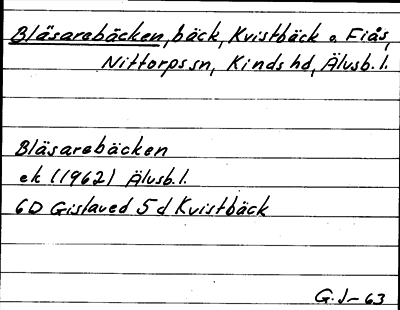 Bläsarebäcken, bäck, Kvistbäck o. Fiås,
Nittorps sn, Kinds hd, Älvsb. l.
Bläsarebäcken
ek (1962) Älvsb. l.
6D Gislaved 5 d Kvistbäck
G. J-63